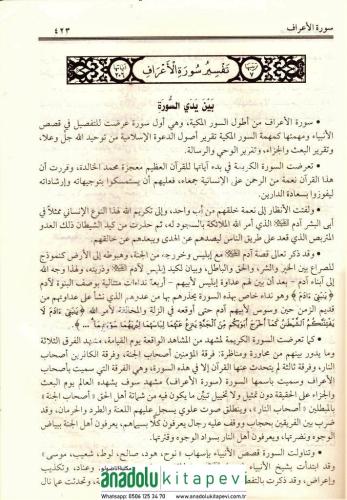 سورة الأعراف ٤٢٣
تفسير سورة الأعراف
بَيْنَ يَدَي السُّورَة
• سورة الأعراف من أطول السور المكية، وهي أول سورة عرضت للتفصيل في قصص
الأنبياء ومهمتها كمهمة السور المكية تقرير أصول الدعوة الإسلامية من توحيد الله جل وعلا،
وتقرير البعث والجزاء، وتقرير الوحي والرسالة.
• تعرضت السورة الكريمة في بدء آياتها للقرآن العظيم معجزة محمد الخالدة، وقررت أن
هذا القرآن نعمة من الرحمن على الإنسانية جمعاء، فعليهم أن يستمسكوا بتوجيهاته وإرشاداته
ليفوزوا بسعادة الدارين.
• ولفتت الأنظار إلى نعمة خلقهم من أب واحد، وإلى تكريم الله لهذا النوع الإنساني ممثلاً في
أبي البشر آدم الذي أمر الله الملائكة بالسجود له، ثم حذرت من كيد الشيطان ذلك العدو
المتربص الذي قعد على طريق الناس ليصدهم عن الهدى ويبعدهم عن خالقهم.
• وقد ذكر تعالى قصة آدم مع إبليس وخروجه من الجنة، وهبوطه إلى الأرض كنموذج
للصراع بين الخير والشر، والحق والباطل، وبيان لكيد إبليس لآدم وذريته، ولهذا وجه الله
إلى أبناء آدم - بعد أن بين لهم عداوة إبليس لأبيهم - أربعة نداءات متتالية بوصف البنوة لآدم
﴿يَٰبَنِيٓ ءَادَمَ﴾ وهو نداء خاص بهذه السورة يحذرهم بها من عدوهم الذي نشأ على عداوتهم من
قديم الزمن حين وسوس لأبيهم آدم حتى أوقعه في الزلة والمخالفة لأمر الله ﴿يَٰبَنِيٓ ءَادَمَ لَا
يَفْتِنَنَّكُمُ ٱلشَّيْطَٰنُ كَمَآ أَخْرَجَ أَبَوَيْكُم مِّنَ ٱلْجَنَّةِ يَنزِعُ عَنْهُمَا لِبَاسَهُمَا لِيُرِيَهُمَا سَوْءَٰتِهِمَآ ...﴾.
• كما تعرضت السورة الكريمة لمشهد من المشاهد الواقعة يوم القيامة، مشهد الفرق الثلاثة
وما يدور بينهم من محاورة ومناظرة: فرقة المؤمنين أصحاب الجنة، وفرقة الكافرين أصحاب
النار، وفرقة ثالثة لم يتحدث عنها القرآن إلا في هذه السورة، وهي الفرقة التي سميت بأصحاب
الأعراف وسميت باسمها السورة (سورة الأعراف) مشهد سوف يشهده العالم يوم البعث
والجزاء على الحقيقة دون تمثيل ولا تخييل تبيّن ما يكون فيه من شماتة أهل الحق «أصحاب الجنة»
بالمبطلين «أصحاب النار»، وينطلق صوت علوي يسجل عليهم اللعنة والطرد والحرمان، وقد
ضرب بين الفريقين بحجاب ووقف عليه رجال يعرفون كلاً بسيماهم، يعرفون أهل الجنة ببياض
الوجوه ونضرتها، ويعرفون أهل النار بسواد الوجوه وقترتها.
• وتناولت السورة قصص الأنبياء بإسهاب «نوح، هود، صالح، لوط، شعيب، موسى»
وقد ابتدأت بشيخ الأنبياء وعناد، وتكذيب
وتحدثت عما نال
anadolu kitapevi
Whatsapp: 0506 125 34 70 www.anadolukitapevi.com.tr